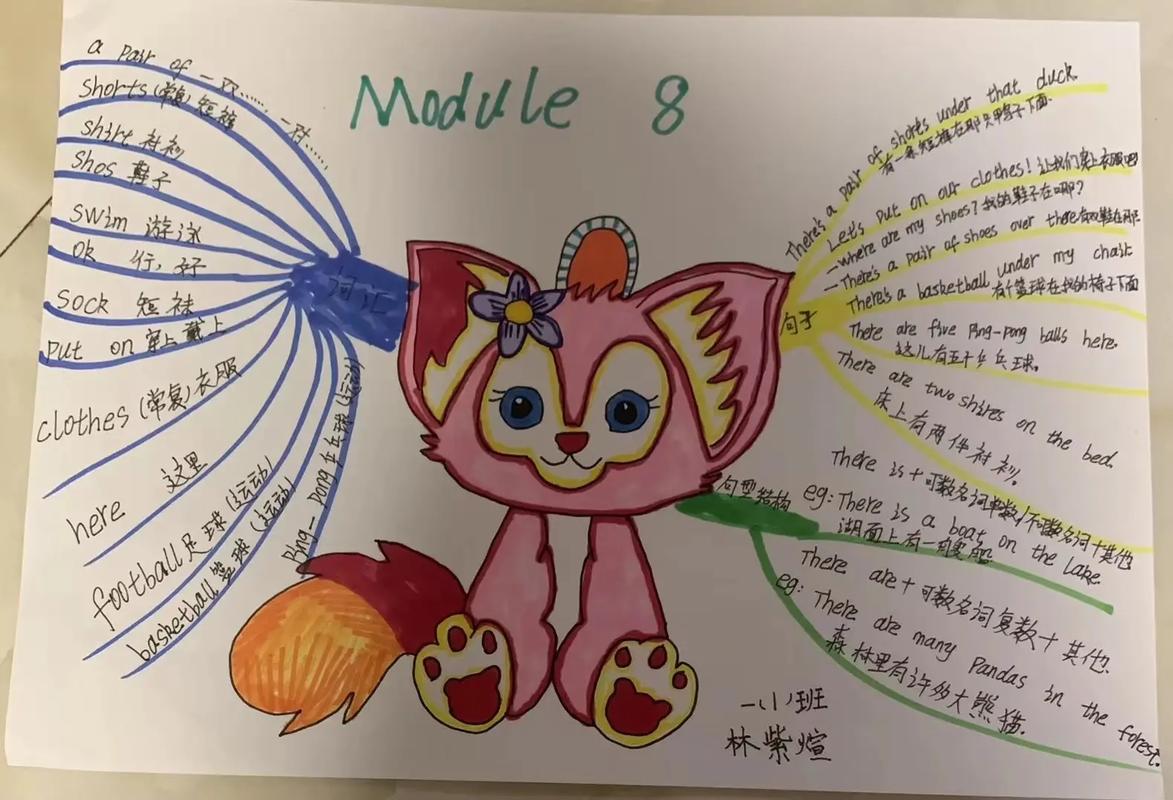 Module 8
词汇
a pair of 一双……一对……
shorts (常复) 短裤
shirt 衬衫
shos 鞋子
swim 游泳
ok 行,好
sock 短袜
put on 穿上,戴上
clothes (常复) 衣服
here 这里
football 足球 (运动)
basketball 篮球 (运动)
Ping-pong 乒乓球 (运动)
句子
There's a pair of shorts under that duck.
有一条短裤在那只鸭子下面.
Let's put on our clothes! 让我们穿上衣服吧
-where are my shoes? 我的鞋子在哪?
-There's a pair of shoes over there 有双鞋在那.
There's a basketball under my chair
有个篮球在我的椅子下面
There are five Ping-pong balls here.
这儿有五个乒乓球。
There are two shires on the bed.
床上有两件衬衫。
句型结构
There is + 可数名词单数/不可数名词+其他
eg: There is a boat on the lake.
湖面上有一艘船
There are + 可数名词复数 + 其他.
eg: There are many Pandas in the forest.
森林里有许多大熊猫.
一(1)班
林紫煊